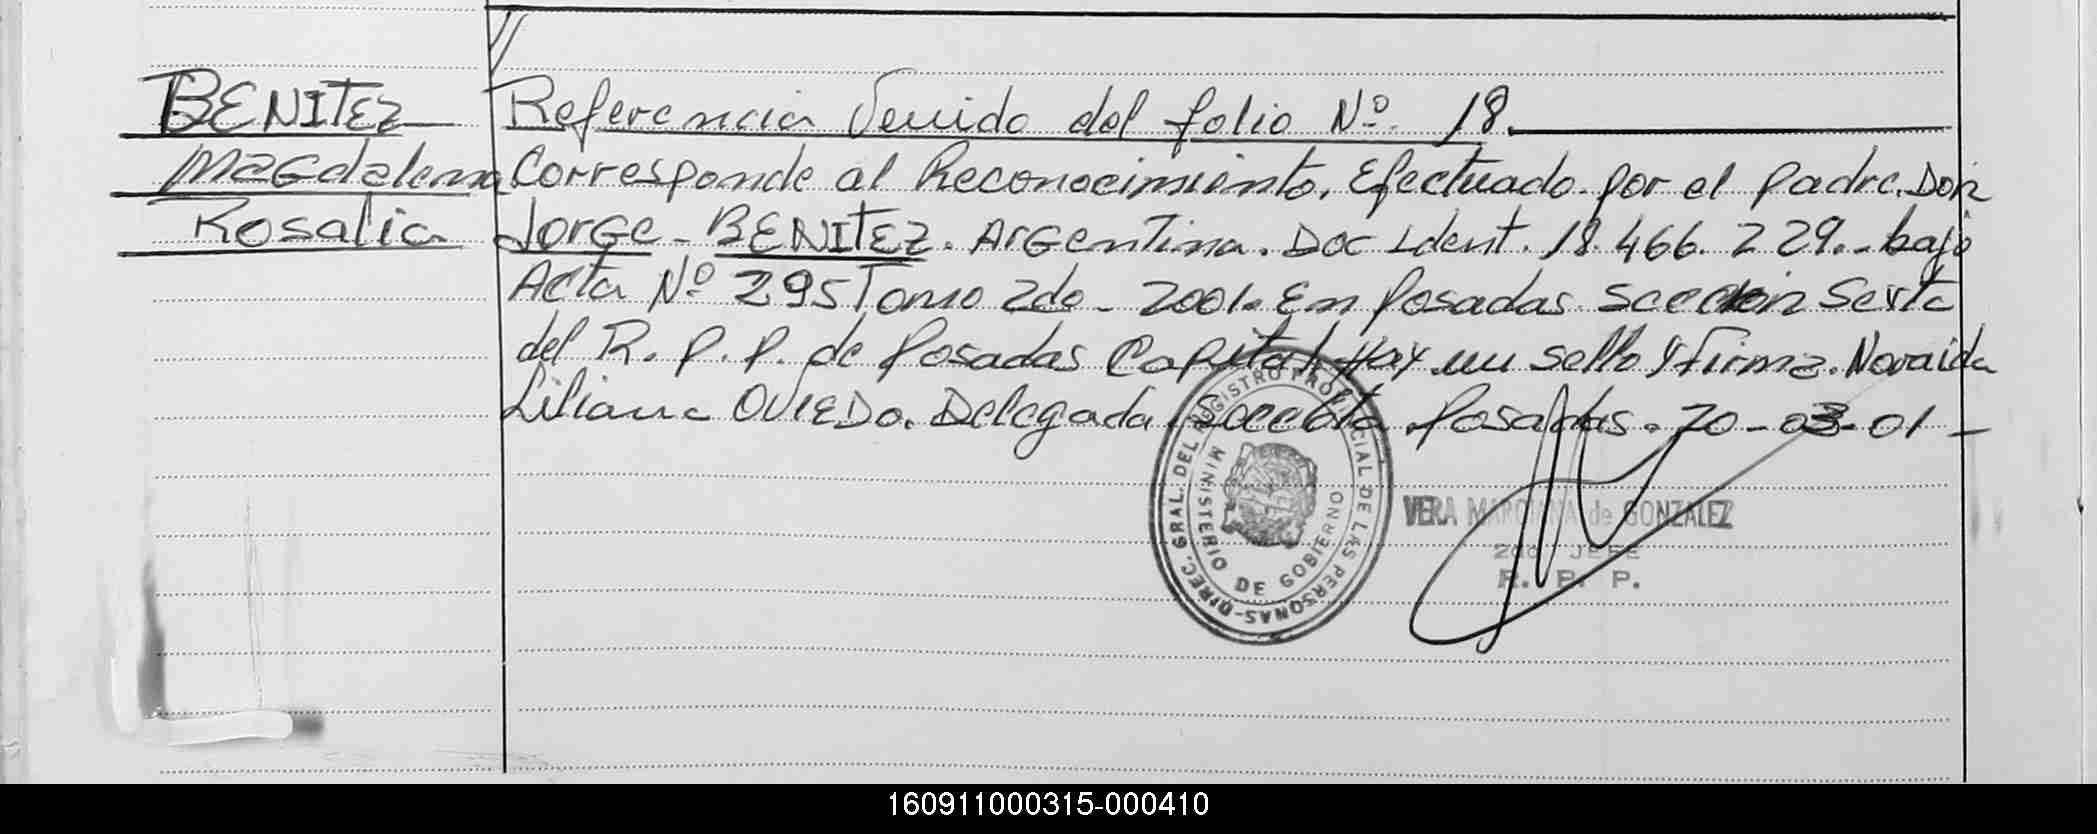 BENITEZ
Magdalena
Rosalia
Referencia Venido del folio Nº. 18.
Corresponde al Reconocimiento. Efectuado por el padre. Don
Jorge - BENITEZ. Argentina. Doc Ident. 18.466.229.- bajo
Acta Nº 295 Tomo 2do - 2001. En Posadas Seccion Sexta
del R. P. P. de Posadas Capital. Hay un sello y firma.
Liliana OVIEDO. Delegada Posadas. 20-03-01-
DIREC. GRAL. DEL REGISTRO PROVINCIAL DE LAS PERSONAS-
MINISTERIO DE GOBIERNO
VERA MARCIANA de GONZALEZ
2do JEFE
R. P. P.
160911000315-000410